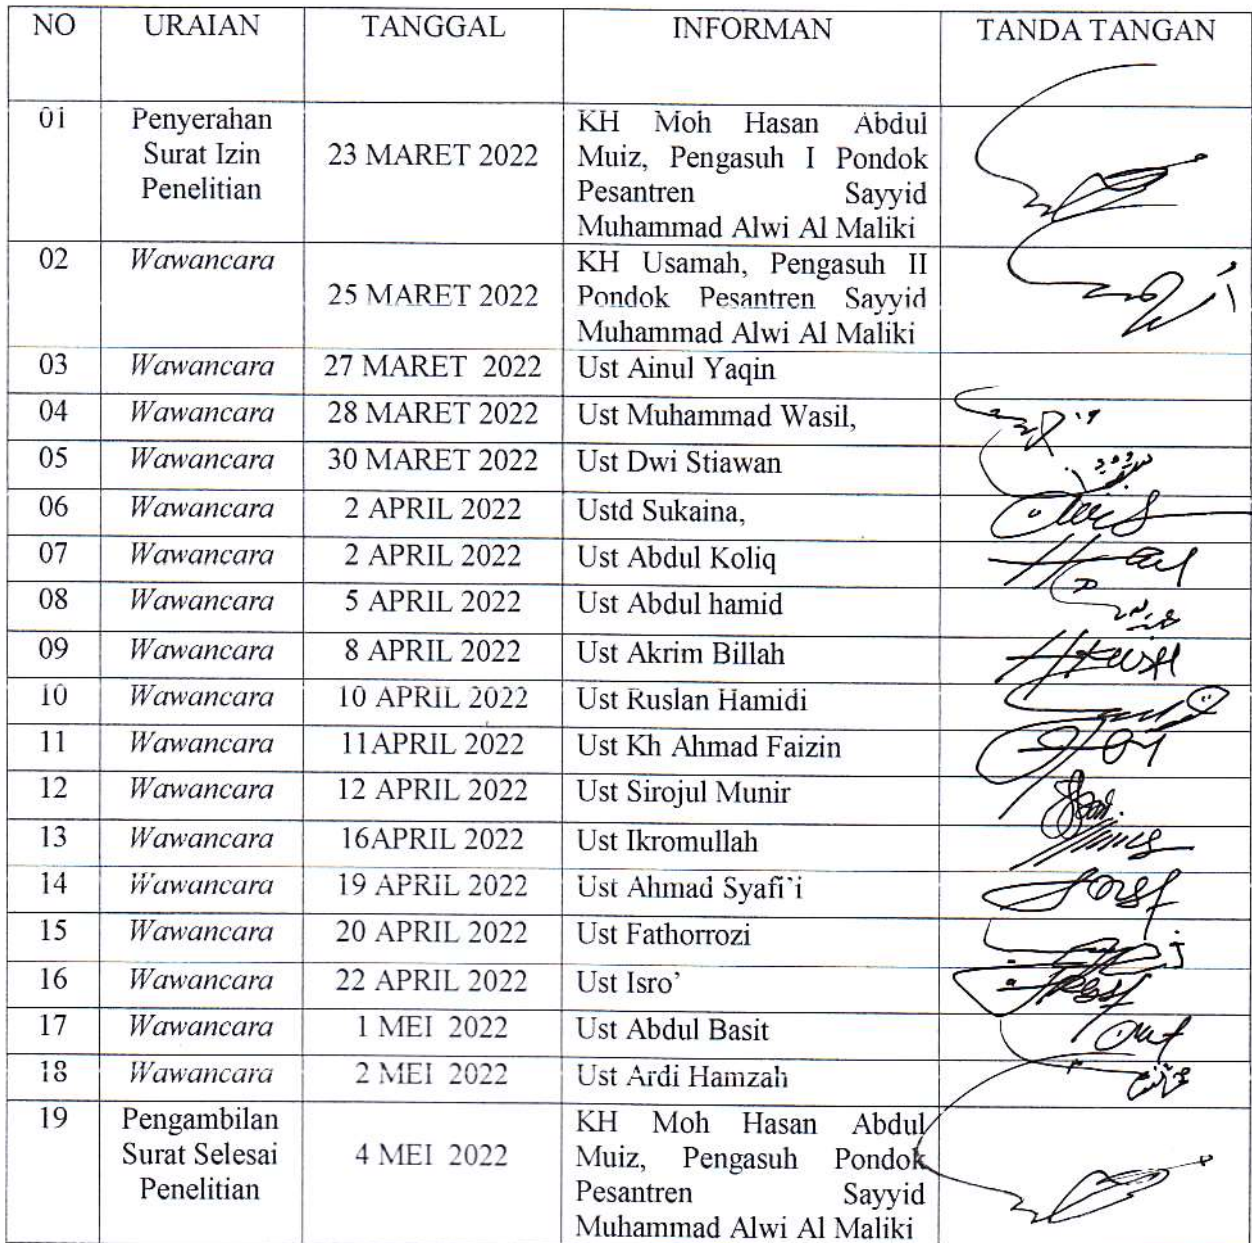 NO URAIAN TANGGAL INFORMAN TANDA TANGAN
01 Penyerahan Surat Izin Penelitian 23 MARET 2022 KH Moh Hasan Abdul Muiz, Pengasuh I Pondok Pesantren Sayyid Muhammad Alwi Al Maliki
02 Wawancara 25 MARET 2022 KH Usamah, Pengasuh II Pondok Pesantren Sayyid Muhammad Alwi Al Maliki
03 Wawancara 27 MARET 2022 Ust Ainul Yaqin
04 Wawancara 28 MARET 2022 Ust Muhammad Wasil,
05 Wawancara 30 MARET 2022 Ust Dwi Stiawan
06 Wawancara 2 APRIL 2022 Ustd Sukaina,
07 Wawancara 2 APRIL 2022 Ust Abdul Koliq
08 Wawancara 5 APRIL 2022 Ust Abdul hamid
09 Wawancara 8 APRIL 2022 Ust Akrim Billah
10 Wawancara 10 APRIL 2022 Ust Ruslan Hamidi
11 Wawancara 11APRIL 2022 Ust Kh Ahmad Faizin
12 Wawancara 12 APRIL 2022 Ust Sirojul Munir
13 Wawancara 16APRIL 2022 Ust Ikromullah
14 Wawancara 19 APRIL 2022 Ust Ahmad Syafi`i
15 Wawancara 20 APRIL 2022 Ust Fathorrozi
16 Wawancara 22 APRIL 2022 Ust Isro’
17 Wawancara 1 MEI 2022 Ust Abdul Basit
18 Wawancara 2 MEI 2022 Ust Ardi Hamzah
19 Pengambilan Surat Selesai Penelitian 4 MEI 2022 KH Moh Hasan Abdul Muiz, Pengasuh Pondok Pesantren Sayyid Muhammad Alwi Al Maliki